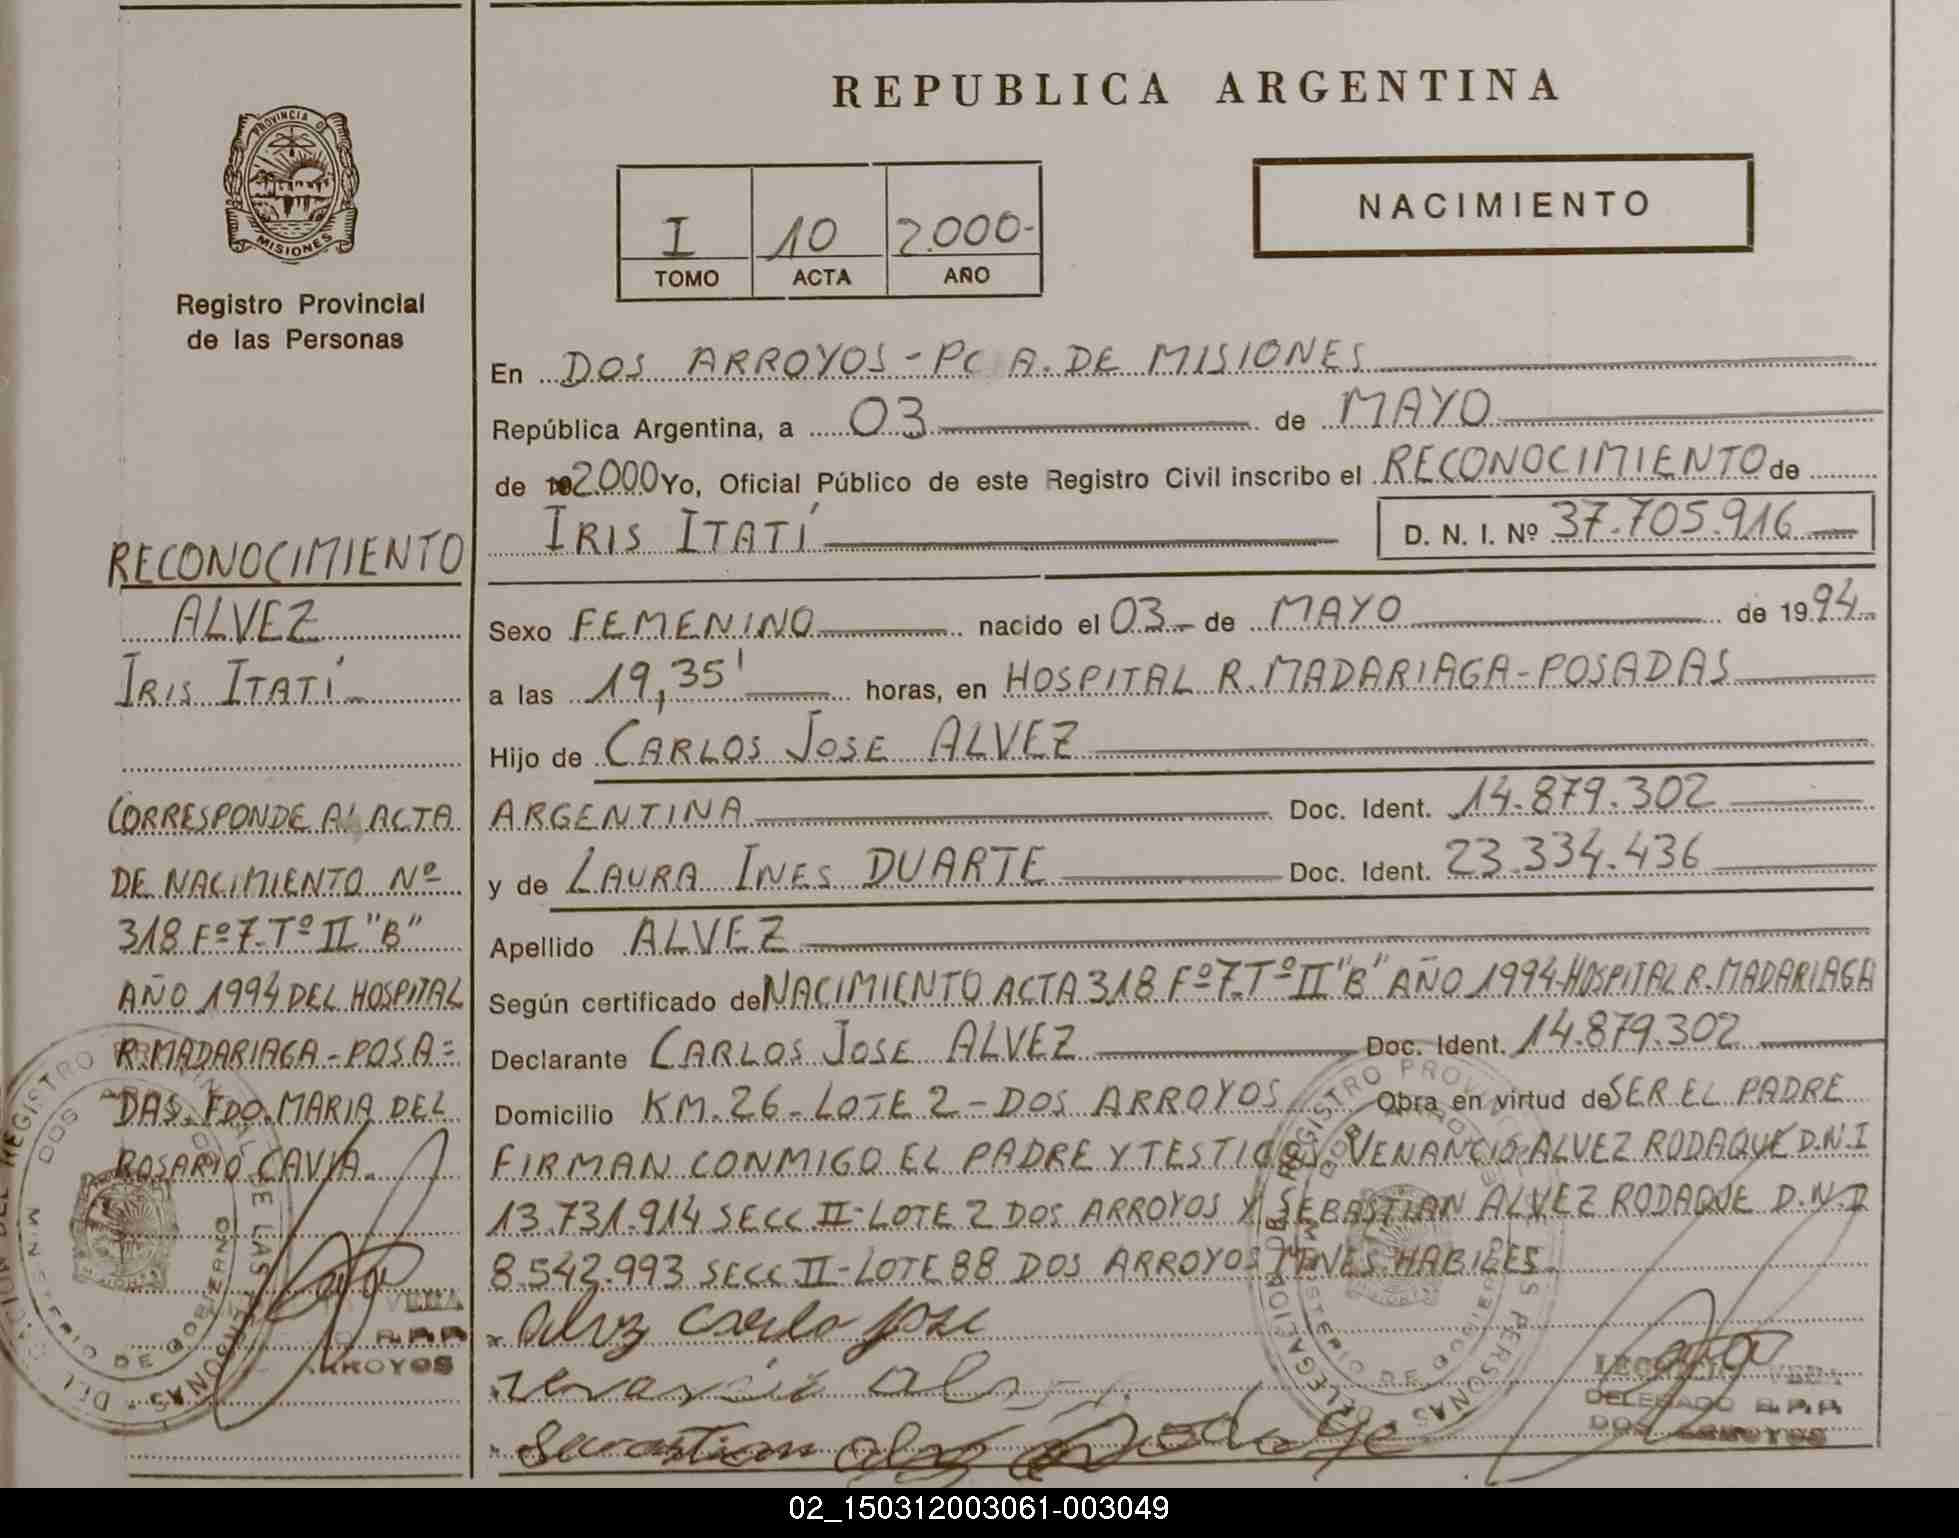 PROVINCIA DE
MISIONES
Registro Provincial
de las Personas
RECONOCIMIENTO
ALVEZ
IRIS ITATÍ
CORRESPONDE AL ACTA
DE NACIMIENTO Nº
318 Fº 7-Tº II "B"
AÑO 1994 DEL HOSPITAL
R. MADARIAGA - POSA=
DAS. FDO. MARIA DEL
ROSARIO CAVIA.
REPUBLICA ARGENTINA
I 10 2.000-
TOMO ACTA AÑO
NACIMIENTO
En DOS ARROYOS - PCIA. DE MISIONES
República Argentina, a 03 de MAYO
de 2.000 Yo, Oficial Público de este Registro Civil inscribo el RECONOCIMIENTO de
IRIS ITATÍ D. N. I. Nº 37.705.916
Sexo FEMENINO nacido el 03 de MAYO de 1994
a las 19,35' horas, en HOSPITAL R. MADARIAGA - POSADAS
Hijo de CARLOS JOSE ALVEZ
ARGENTINA Doc. Ident. 14.879.302
y de LAURA INES DUARTE Doc. Ident. 23.334.436
Apellido ALVEZ
Según certificado de NACIMIENTO ACTA 318 Fº 7-Tº II "B" AÑO 1994-HOSPITAL R. MADARIAGA
Declarante CARLOS JOSE ALVEZ Doc. Ident. 14.879.302
Domicilio KM. 26 - LOTE 2 - DOS ARROYOS Obra en virtud de SER EL PADRE
FIRMAN CONMIGO EL PADRE Y TESTIGOS VENANCIO ALVEZ RODAQUE D.N.I
13.731.914 SECC II - LOTE 2 DOS ARROYOS Y SEBASTIAN ALVEZ RODAQUE D.N.I
8.542.993 SECC II - LOTE 88 DOS ARROYOS MNES. HABILES.
Alvez Carlo José
DELEGADO R.P.P.
DOS ARROYOS
02_150312003061-003049